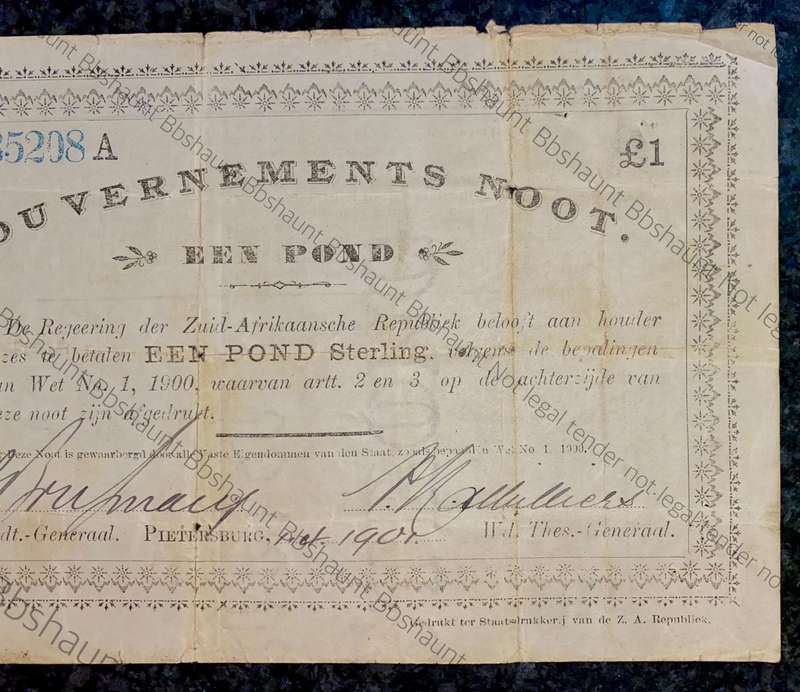 35208 A £1
OUVERNEMENTS NOOT.
EEN POND
De Regeering der Zuid-Afrikaansche Republiek belooft aan houder
zes te betalen EEN POND Sterling, volgens de bepalingen
an Wet No. 1, 1900, waarvan artt. 2 en 3 op de achterzijde van
eze noot zijn afgedrukt.
Deze Noot is gewaarborgd door alle Vaste Eigendommen van den Staat, zooals bepaald in Wet No. 1, 1900.
dt.-Generaal. PIETERSBURG, 1901 Wd. Thes.-Generaal.
Gedrukt ter Staatsdrukkerij van de Z. A. Republiek.
Bbshaunt
Not legal tender